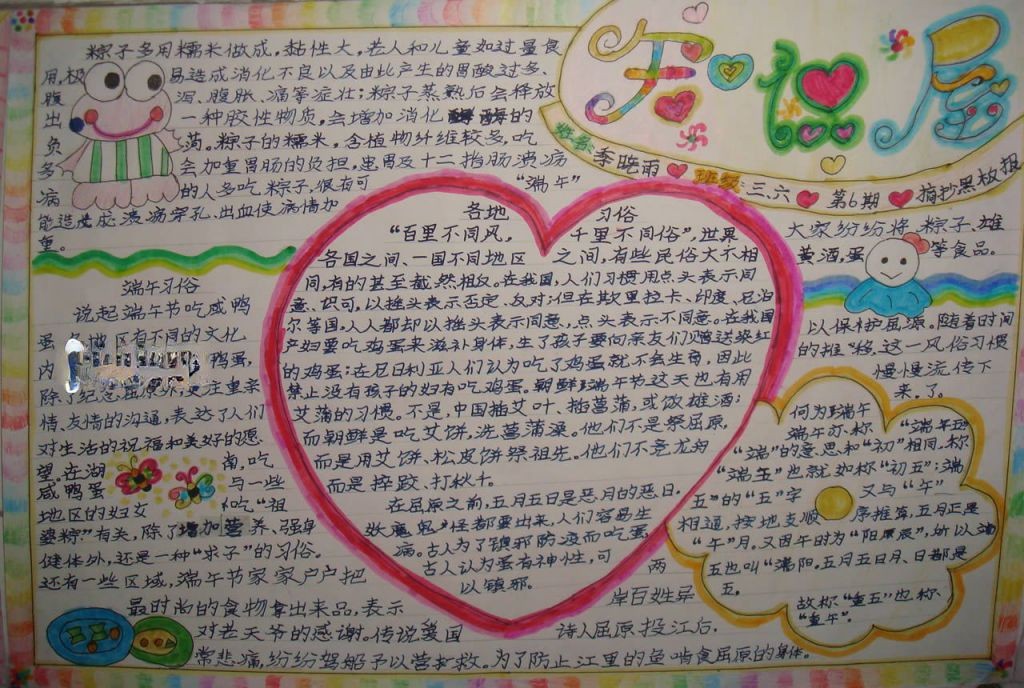 知识屋
姓名:李晓雨 班级:三、六 第6期 摘抄黑板报
粽子多用糯米做成,黏性大,老人和儿童如过量食
用,极易造成消化不良以及由此产生的胃酸过多、
腹泻、腹胀、痛等症壮;粽子蒸熟后会释放
出一种胶性物质,会增加消化酶的
负荷。粽子的糯米,含植物纤维较多,吃
多会加重胃肠的负担,患胃及十二指肠溃疡
病的人多吃粽子,很有可
能造成溃疡穿孔、出血使病情加
重。
端午习俗
说起端午节吃咸鸭
蛋 地区有不同的文化
内 鸭蛋,
除了纪念屈原外,更注重亲
情、友情的沟通,表达了人们
对生活的祝福和美好的愿
望。在湖南,吃
咸鸭蛋与一些
地区的妇女吃“祖
婆粽”有关,除了增加营养、强身
健体外,还是一种“求子”的习俗。
还有一些区域,端午节家家户户把
最时尚的食物拿出来品,表示
对老天爷的感谢。传说爱国
“端午”
各地习俗
“百里不同风,千里不同俗”,世界
各国之间、一国不同地区之间,有些民俗大不相
同,有的甚至截然相反。在我国,人们习惯用点头表示同
意、识可,以摇头表示否定、反对;但在斯里拉卡、印度、尼泊
尔等国,人人都却以摇头表示同意,点头表示不同意。在我国
产妇要吃鸡蛋来滋补身体,生了孩子要向亲友们赠送染红
的鸡蛋;在尼日利亚人们认为吃了鸡蛋就不会生育,因此
禁止没有孩子的妇有吃鸡蛋。朝鲜端午节这天也有用
艾蒲的习惯。不是,中国插艾叶、插菖蒲,或饮雄酒;
而朝鲜是吃艾饼,洗菖蒲澡。他们不是祭屈原,
而是用艾饼、松皮饼祭祖先。他们不竞龙舟
而是摔跤、打秋千。
在屈原之前,五月五日是恶月的恶日,
妖魔鬼怪都要出来,人们容易生
病。古人为了镇邪防疫而吃蛋,
古人认为蛋有神性,可
以镇邪。
诗人屈原投江后,
两
岸百姓异
常悲痛,纷纷驾船予以营救。为了防止江里的鱼啃食屈原的身体。
大家纷纷将粽子、雄
黄酒,蛋等食品。
以保护屈原。随着时间
的推移,这一风俗习惯
慢慢流传下
来了。
何为端午
端午亦称“端午五”
“端”的意思和“初”相同,称
“端五”也就如称“初五”;端
五”的“五”字又与“午”
相通,按地支顺序推算,五月正是
“午”月。又因午时为“阳辰”,所以端
五也叫“端阳。五月五日月、日都是
五。
故称“重五”也称、
“重午”。